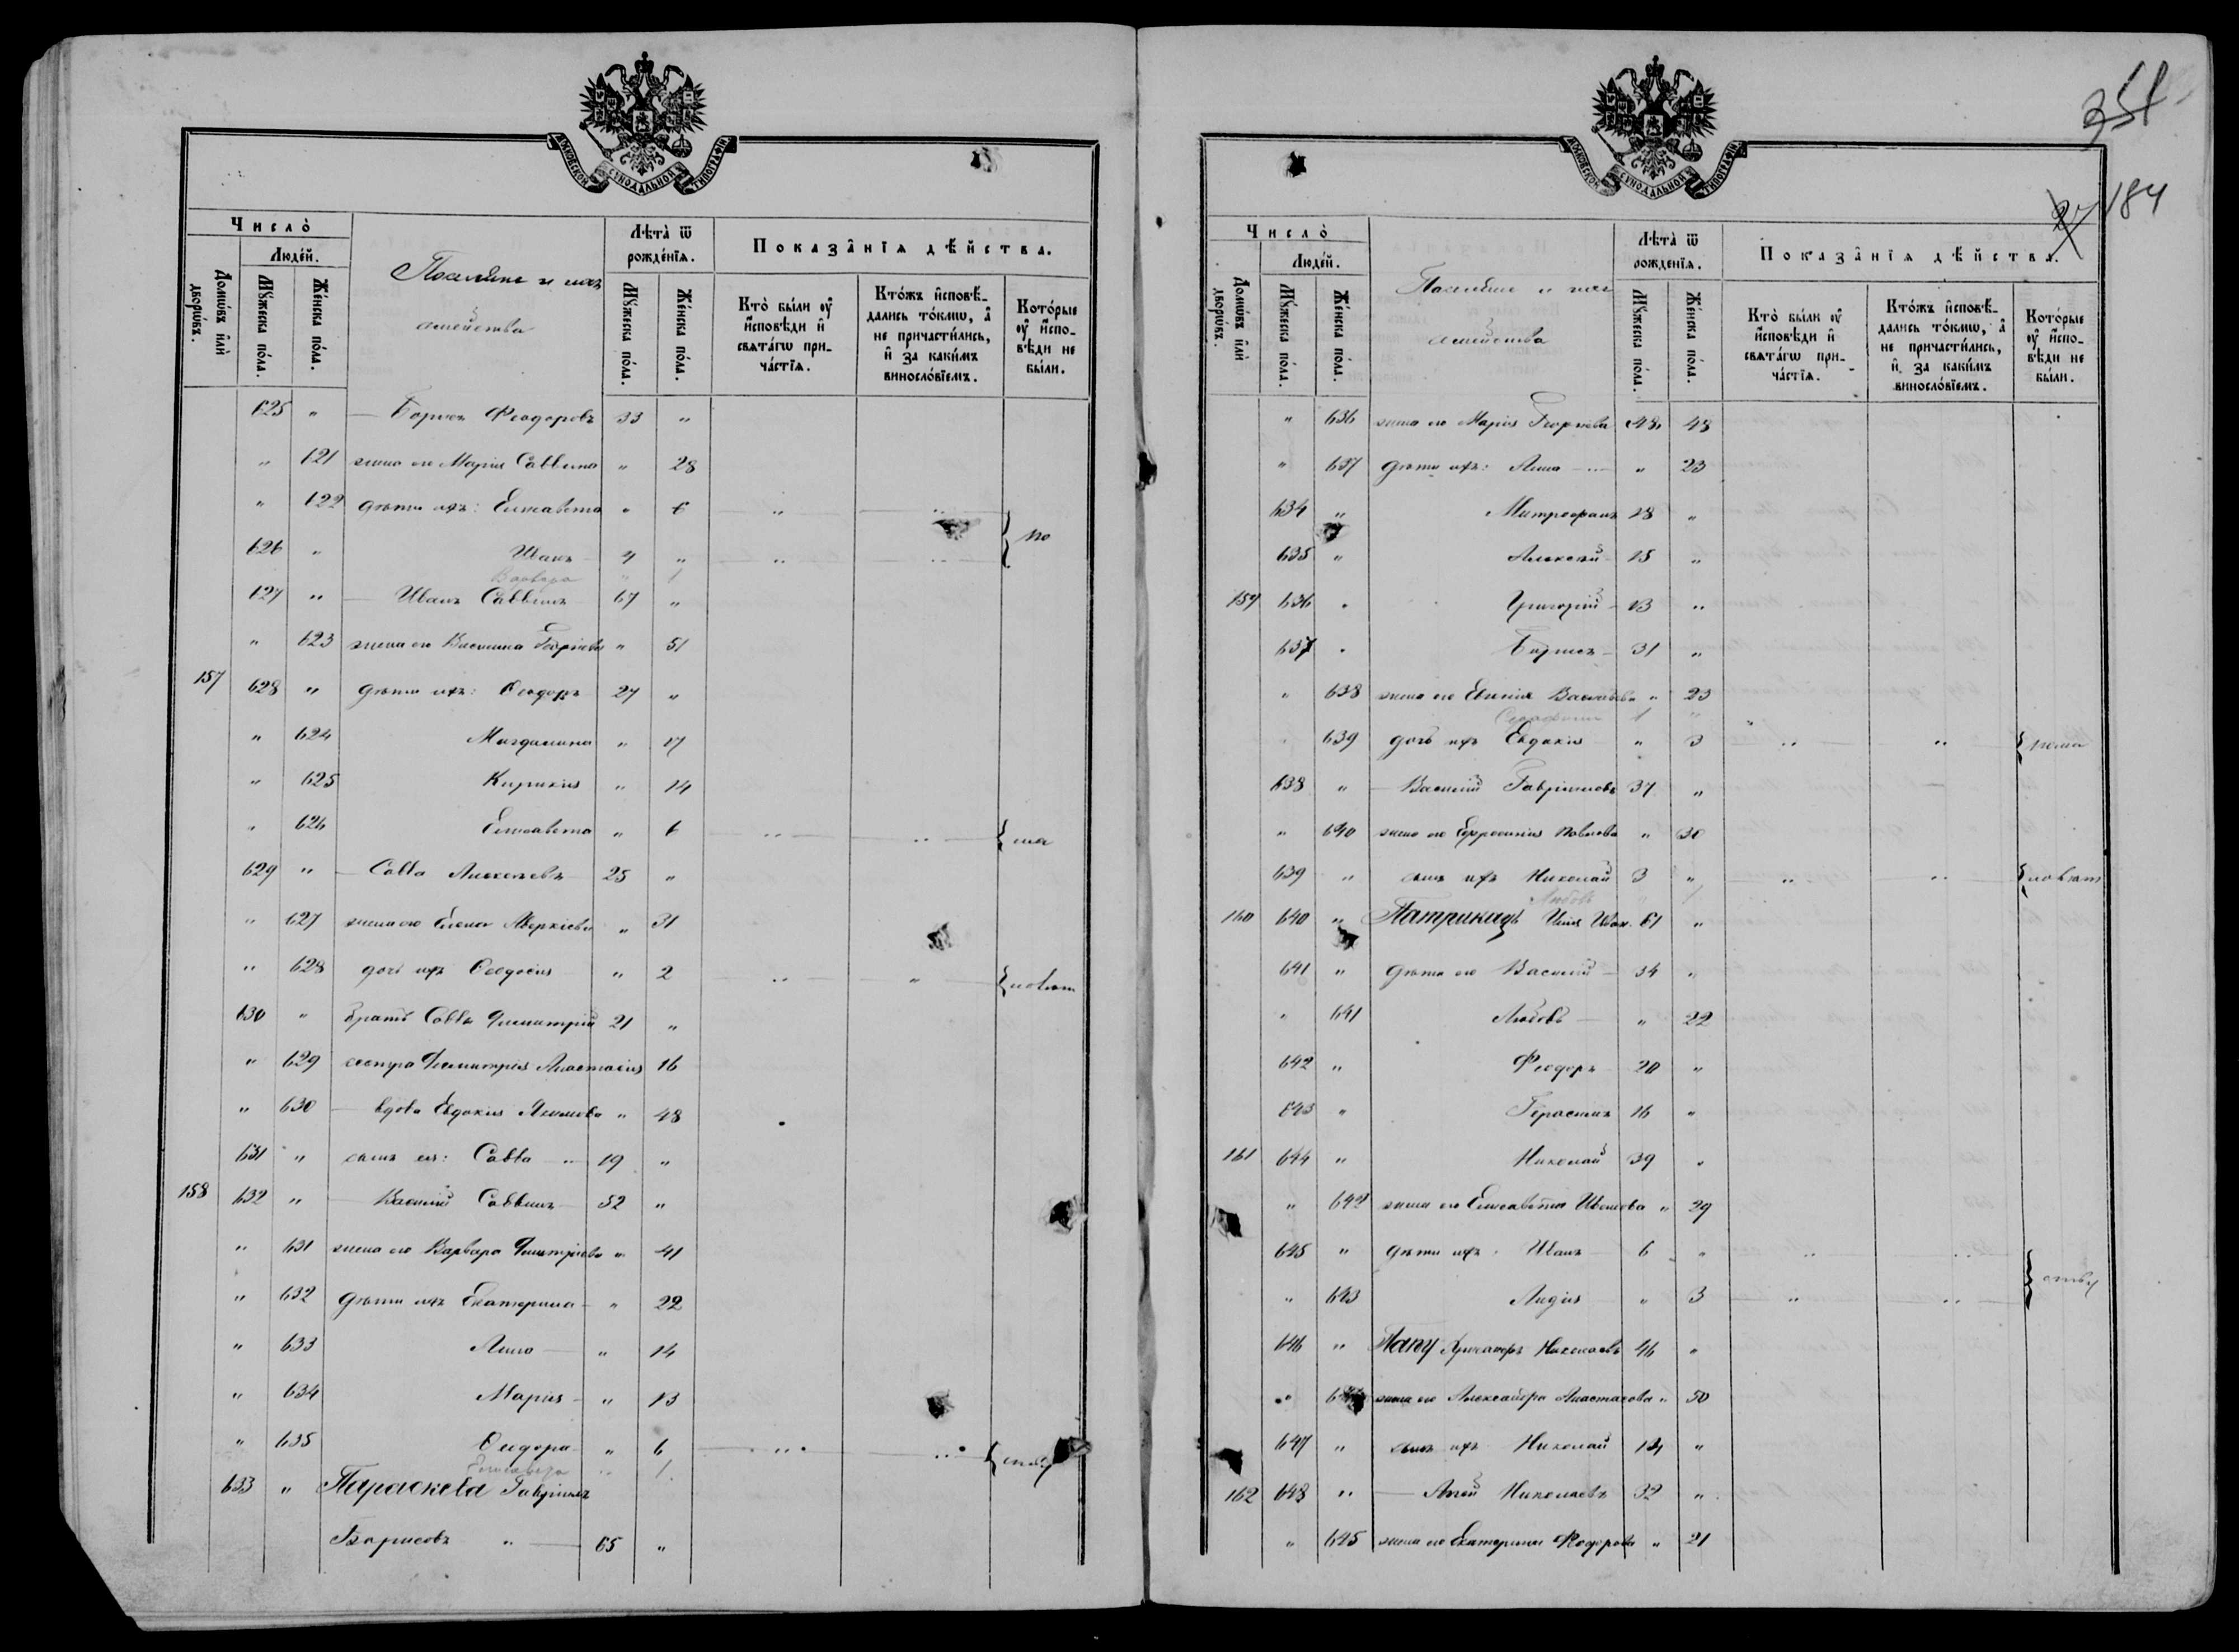 МОСКОВСКОЙ СѴНОДАЛЬНОЙ ТИПОГРАФІИ
Число̀
Людей.
Домѡвъ илѝ дворѡвъ.
Мꙋжеска по́ла.
Же́нска по́ла.
Поселяне и ихъ
семейства
Лѣта̀ ѿ рожде́нїѧ.
Мꙋжеска по́ла.
Же́нска по́ла.
Показа̂нїѧ дѣ́йства.
Кто̀ бы́ли ᲂу҆ и҆сповѣди и҆ свѧта́гѡ при-ча́стїѧ.
Кто́жъ и҆сповѣ-дались то́кмѡ, а҆ не причасти́лись, и҆ за каки́мъ винословїемъ.
Кото́рые ᲂу҆ и҆спо-вѣди не бы́ли.
625 " — Борисъ Феодоровъ 33 "
" 621 жена его Марія Саввина " 28
" 622 дѣти ихъ: Елисавета " 6 " "
626 " Иванъ 4 " " " } по
Варвара " 1
627 " — Иванъ Саввинъ 67 "
" 623 жена его Василина Георгіева " 51
157 628 " дѣти ихъ: Ѳеодоръ 27 "
" 624 Магдалина " 17
" 625 Кирикія " 14
" 626 Елисавета " 6 " "
629 " — Савва Алексѣевъ 25 "
" 627 жена его Елена Аверкіева " 31
" 628 дочь ихъ Ѳеодосія " 2 " "
630 " братъ Саввы Димитрій 21 "
" 629 сестра Димитрія Анастасія 16
" 630 — вдова Евдокія Якимова " 48
631 " сынъ ея: Савва " 19 "
158 632 " — Василій Саввинъ 52 "
" 631 жена его Варвара Димитріева " 41
" 632 дѣти ихъ Екатерина " 22
" 633 Анна " 14
" 634 Марія " 13
" 635 Ѳеодора " 6 " "
Елисавета " 1
633 " Параскева Гавріилъ
Борисовъ " 65 "
351
27 184
МОСКОВСКОЙ СѴНОДАЛЬНОЙ ТИПОГРАФІИ
Число̀
Людей.
Домѡвъ илѝ дворѡвъ.
Мꙋжеска по́ла.
Же́нска по́ла.
Поселяне и ихъ
семейства
Лѣта̀ ѿ рожде́нїѧ.
Мꙋжеска по́ла.
Же́нска по́ла.
Показа̂нїѧ дѣ́йства.
Кто̀ бы́ли ᲂу҆ и҆сповѣди и҆ свѧта́гѡ при-ча́стїѧ.
Кто́жъ и҆сповѣ-дались то́кмѡ, а҆ не причасти́лись, и҆ за каки́мъ винословїемъ.
Кото́рые ᲂу҆ и҆спо-вѣди не бы́ли.
" 636 жена его Марія Георгіева 48 48
" 637 дѣти ихъ: Анна " 23
634 " Митрофанъ 28 "
635 " Алексѣй 15 "
159 636 " Григорій 13 "
637 " Борисъ 31 "
" 638 жена его Евгенія Васильева " 23
Серафимъ 1 "
639 дочь ихъ Евдокія " 3 " "
638 " — Василій Гавріиловъ 37 "
" 640 жена его Ефросинія Павлова " 30
639 " сынъ ихъ Николай 3 " " "
Любовь 1
160 640 " Патрикацъ Илія Иван. 61 "
641 " дѣти его Василій 34 "
" 641 Любовь " 22
642 " Феодоръ 20 "
643 " Герасимъ 16 "
161 644 " Николай 39 "
" 642 жена его Елисавета Иванова " 29
645 " дѣти ихъ: Иванъ 6 " " "
" 643 Лидія " 3 " "
646 " Папу Николаевъ 46 "
" жена его Александра Анастасова " 50
647 " сынъ ихъ Николай 14 "
162 648 " — Николаевъ 32 "
" 645 жена его Екатерина Феодорова " 21